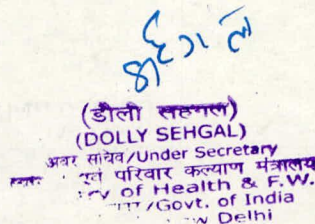 (डौली सहगल)
(DOLLY SEHGAL)
अवर सचिव/Under Secretary
एवं परिवार कल्याण मंत्रालय
of Health & F.W.
/Govt. of India
Delhi